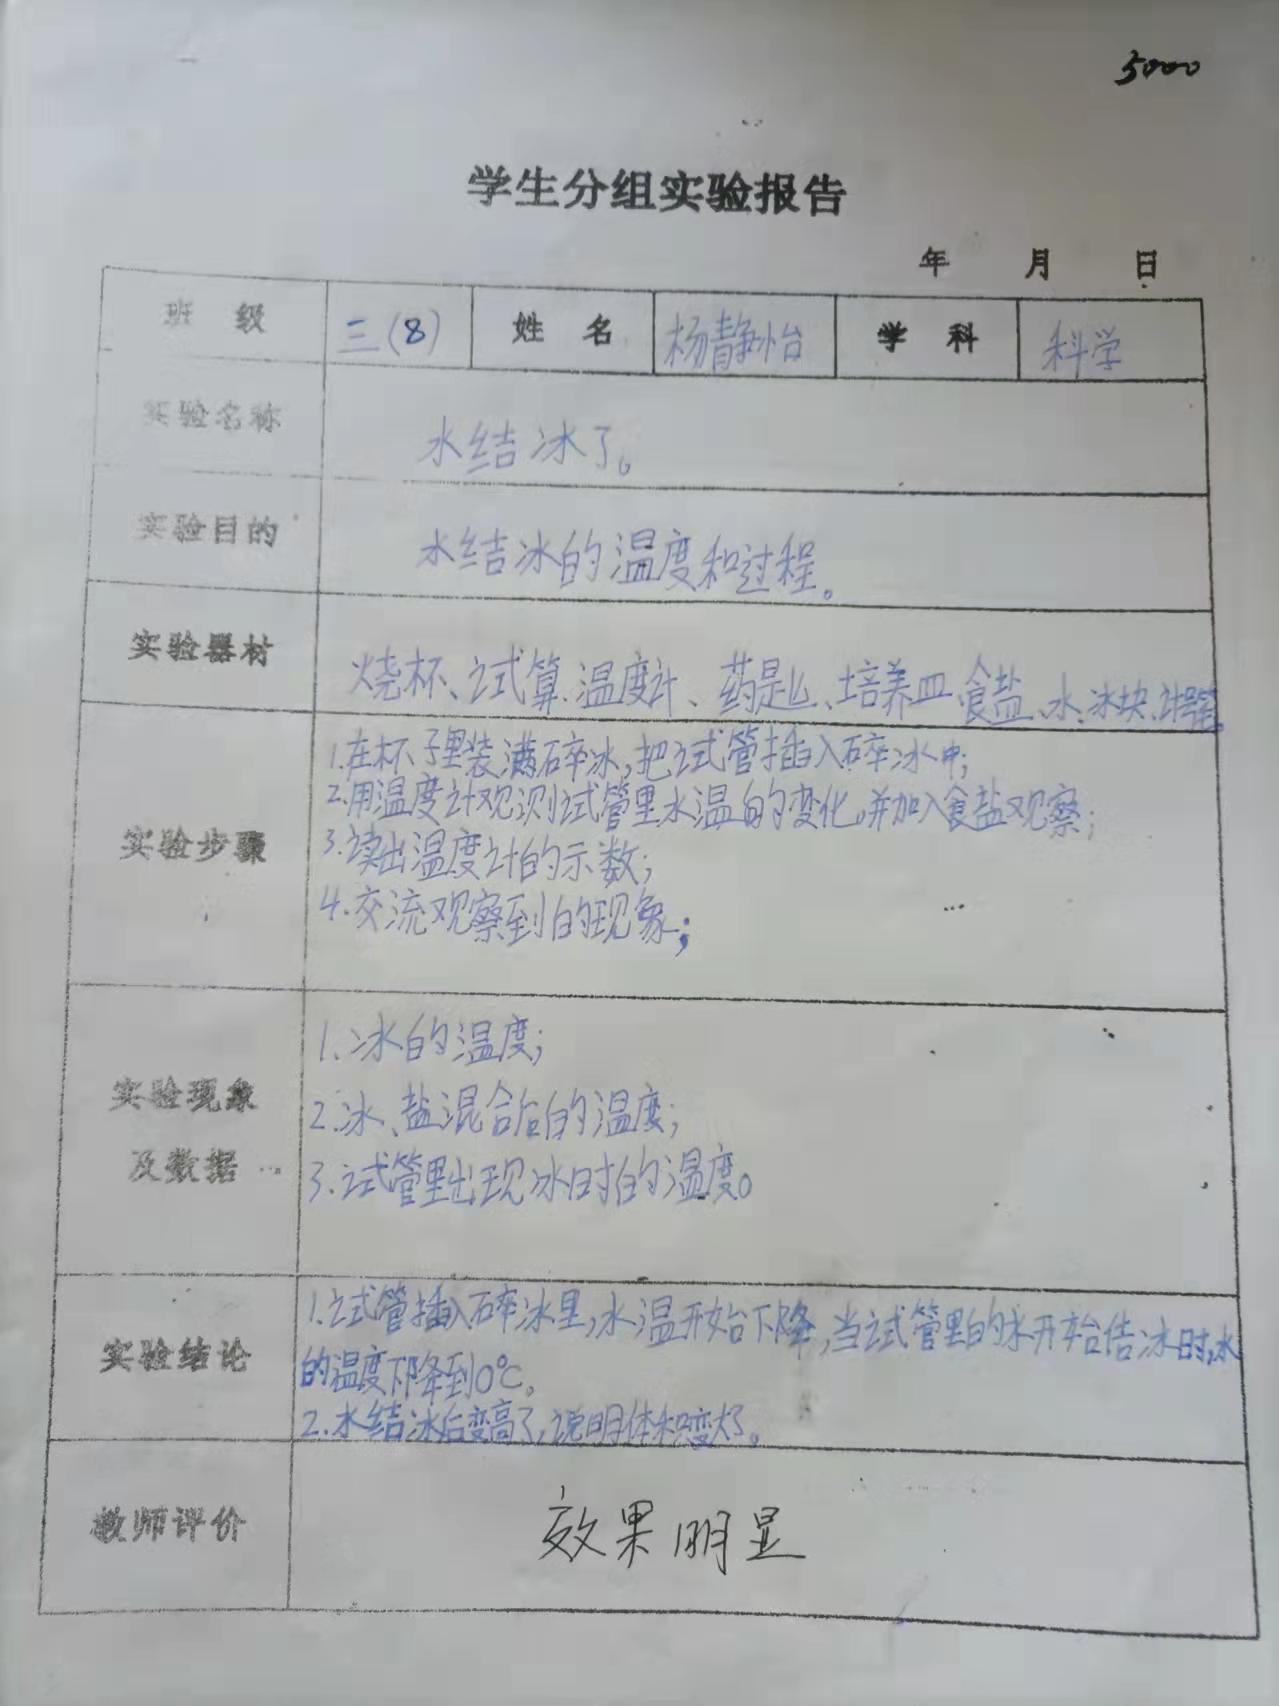 5000
学生分组实验报告
年 月 日
班 级 三(8) 姓 名 杨静怡 学 科 科学
实验名称 水结冰了。
实验目的 水结冰的温度和过程。
实验器材 烧杯、试算、温度计、药是匕、培养皿 食盐、水、冰块、
实验步骤
1.在杯子里装满碎冰,把试管插入碎冰中;
2.用温度计观测试管里水温的变化,并加入食盐观察;
3.读出温度计的示数;
4.交流观察到的现象;
实验现象
及数据
1.冰的温度;
2.冰、盐混合后的温度;
3.试管里出现冰时的温度。
实验结论
1.试管插入碎冰里,水温开始下降,当试管里的水开始结冰时,水
的温度下降到0℃。
2.水结冰后变高了,说明体积变大了。
教师评价 效果明显